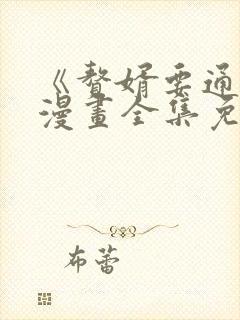 《贅婿要通
漫畫全集免
布蕾